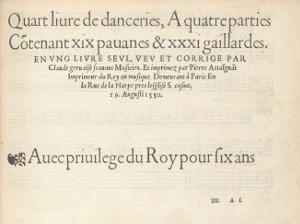 Quart liure de danceries, A quatre parties
Cõtenant xix pauanes & xxxi gaillardes.
EN VNG LIVRE SEVL, VEV ET CORRIGE PAR
Claude geruaise scauant Musicien. Et imprimez par Pierre Attaignāt
Imprimeur du Roy en musique. Demeurant à Paris En
la Rue de la Harpe pres leglise S. cosme.
19. Augusti 1550.
Auec priuilege du Roy pour six ans
IIII. A i.